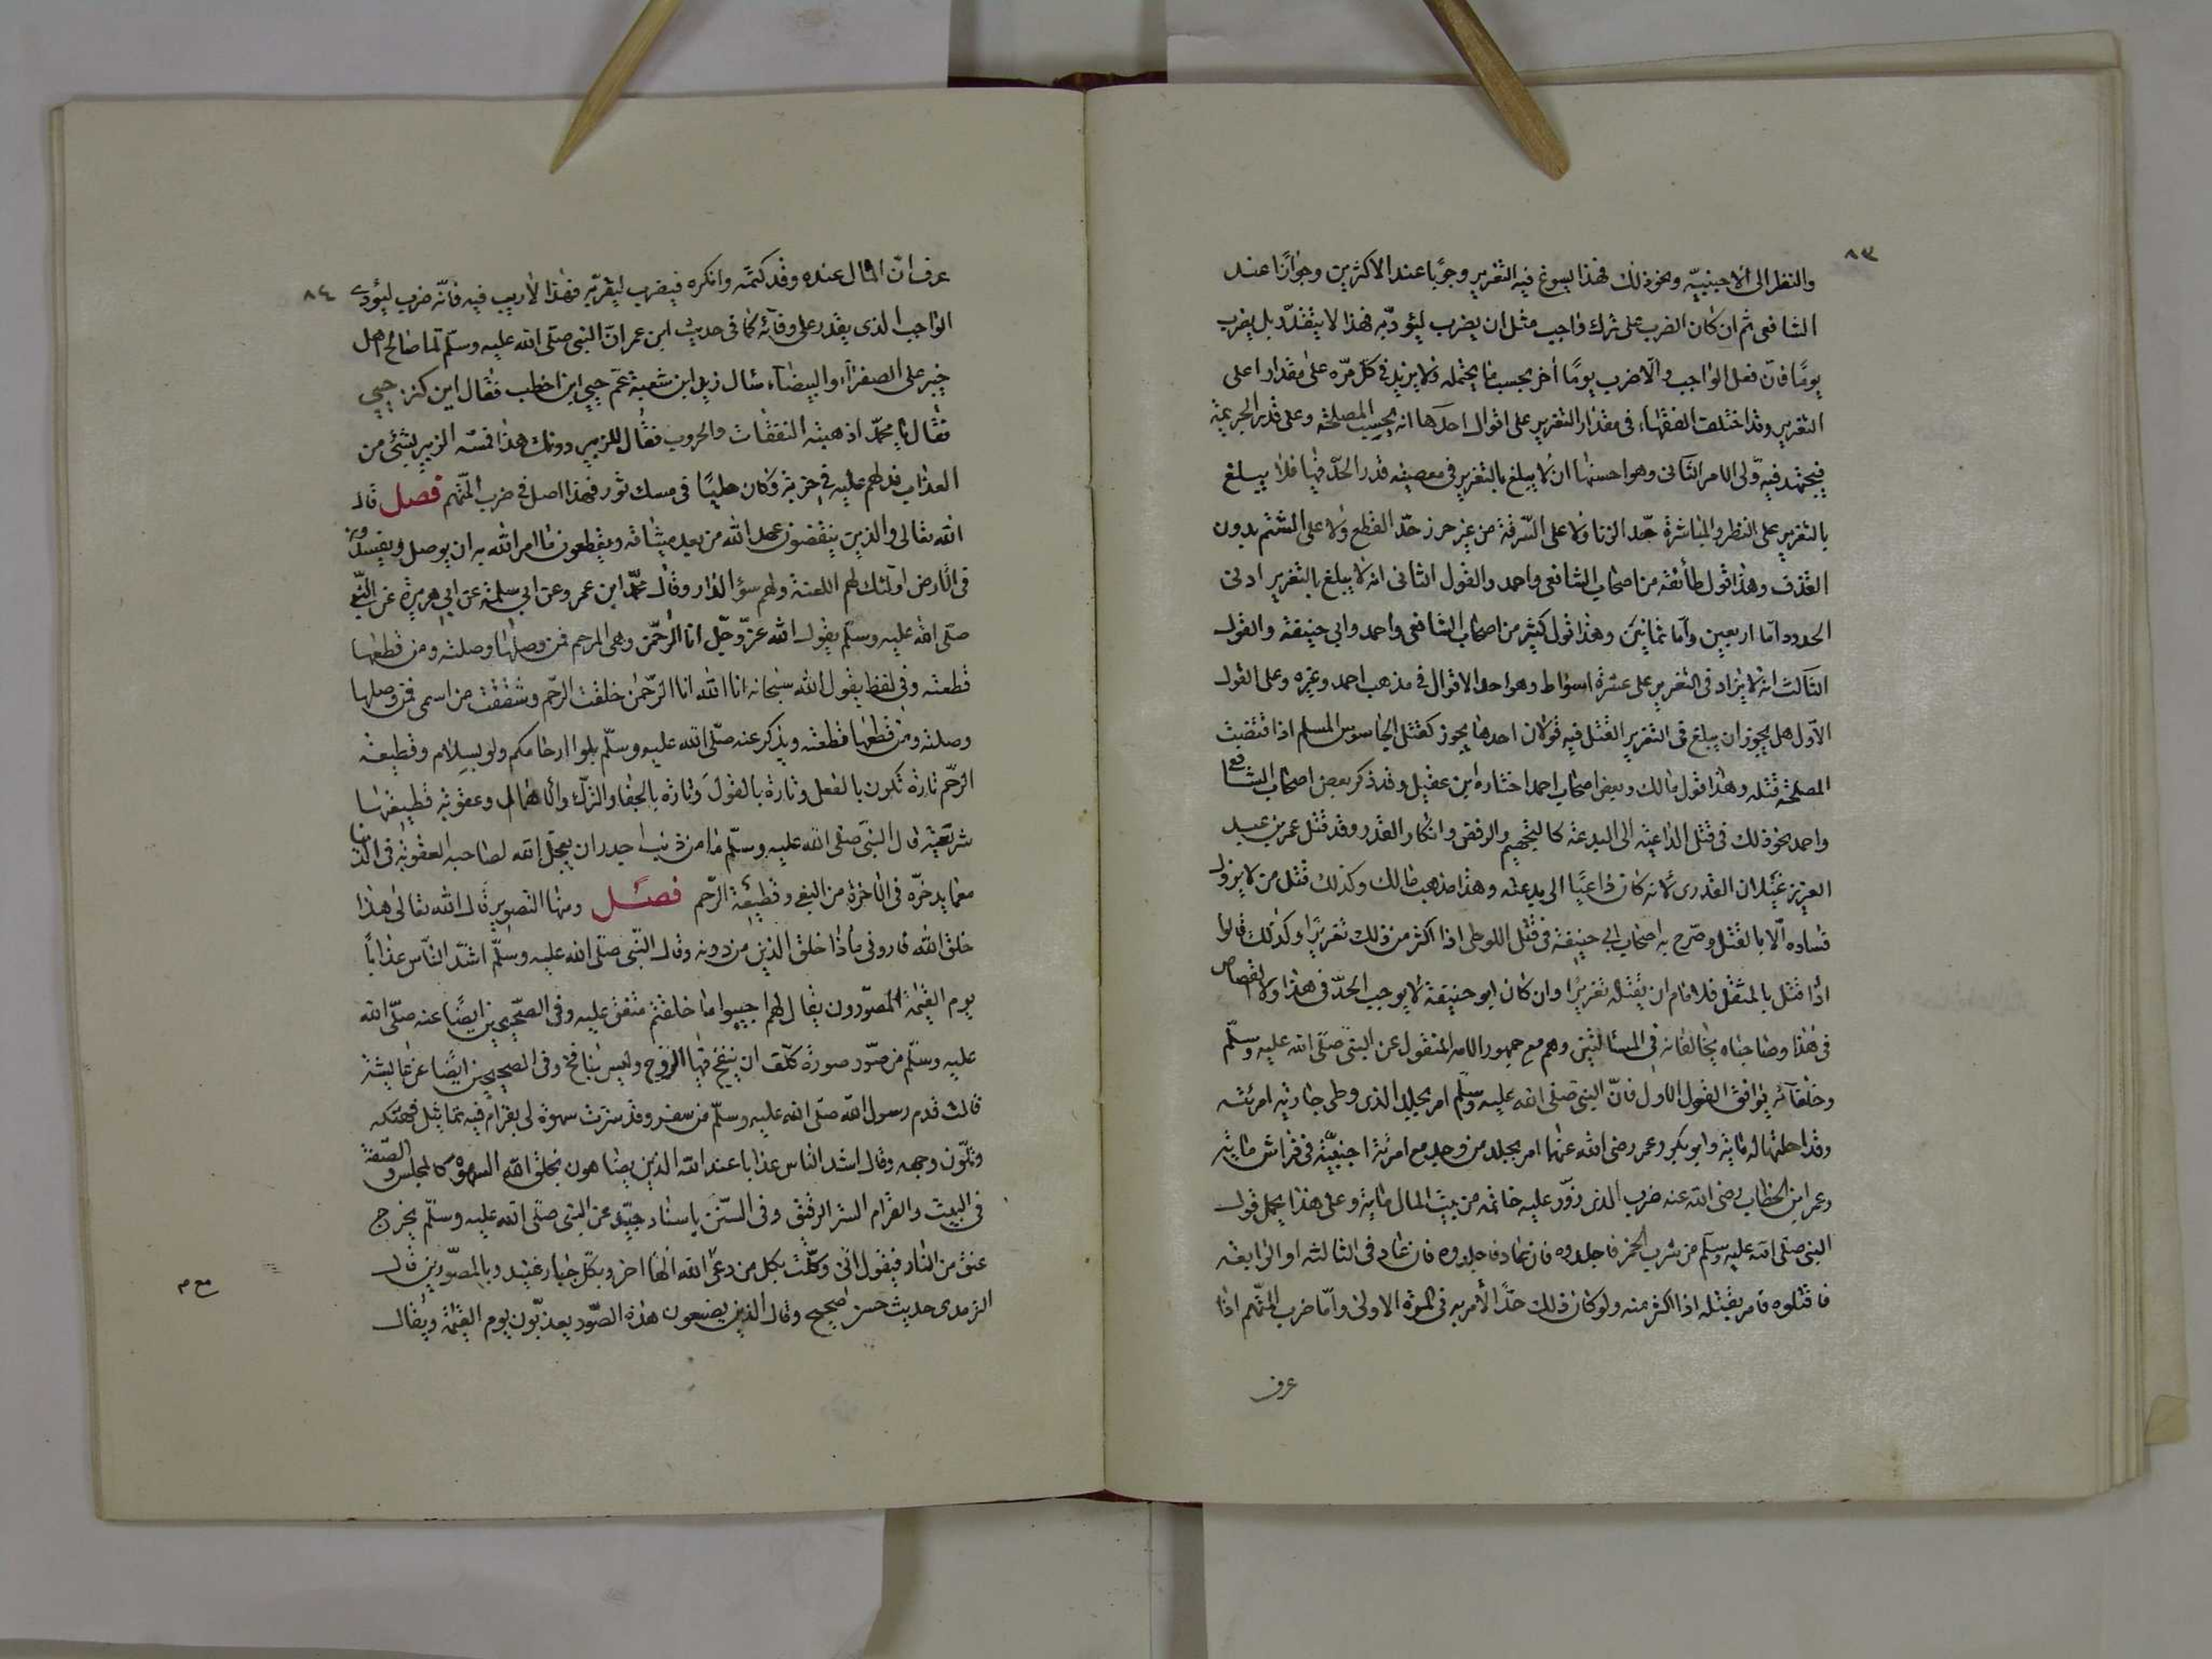 ٨٣
والنظر الى الاجنبيّه ونحو ذلك فهذا يسوغ فيه التعزير وجوًبا عند الاكثرين وجوازًا عند
الشافعى ثم ان كان الضرب على ترك واجب مثل ان يضرب ليؤدّيه فهذا لا يتقدّد بل يضرب
يومًا فان فعل الواجب والّا ضرب يومًا اٰخر بحسب ما يحتمله ولا يزيد فى كلّ مرّه على مقدار اعلى
التعزير وقد اختلف الفقهاء فى مقدار التعزير على اقوال احدها انه بحسب المصلحة وعلى قدر الجريمة
فيجتهد فيه ولى الامر الثانى وهو احسنها ان لا يبلغ بالتعزير فى معصيته قدر الحدّ فيها فلا يبلغ
بالتعزير على النظر والمباشرة حّد الزنا ولا على السّرقة من غير حرز حدّ القطع ولا على الشتم بدون
القذف وهذا قول طأئفة من اصحاب الشافعى واحمد والقول الثانى انه لا يبلغ بالتعزير ادنى
الحدود اما اربعين وأما ثمانين وهذا قول كثير من اصحاب الشافعى واحمد وابي حنيفة والقول
الثالث انه لا يزاد فى التعزير على عشرة اسواط وهو احد الاقوال فى مذهب احمد وغيره وعلى القول
الاول هل يجوز ان يبلغ فى التعزير القتل فيه قولان احدها يجوز كقتل الجاسوس المسلم اذا قتضت
المصلحة قتله وهذا قول مالك وبعض اصحاب احمد اختاره ابن عقيل وقد ذكر بعض اصحاب الشافعى
واحمد نحو ذلك فى قتل الداعية الى البدعة كالتجهم والرفض وانكار القدر وقد قتل عمر بن عبد
العزيز غيلان القدرى لانه كان داعيًا الى بدعته وهذا مذهب مالك وكذلك قتل من لا يزول
فساده الّا بالقتل وصرّح به اصحاب ابي حنيفة فى قتل اللوطى اذا اكثر من ذلك تعزيرًا وكذلك قالوا
اذا قتل بالمثقل فلامام ان يقتله تعزيرًا وان كان ابو حنيفة لا يوجب الحدّ فى هذا ولا القصاص
فى هذا وصاحباه يخالفانه فى المسالتين وهم مع جمهور الامه المنقول عن النبىّ صلّى الله عليه وسلّم
وخلفائه يوافق القول الاول فانّ النبى صلى الله عليه وسلّم امر بجلد الذى وطى جارية امرئته
وقد احلتها له مائة وابو بكر وعمر رضى الله عنهما امر بجلد من وجد مع امرئة اجنبيّة فى فراش مائة
وعمر ابن الخطاب رضى الله عنه ضرب الذى زوّر عليه خاتمه من بيت المال مائة وعلى هذا يحمل قول
النبى صلى الله عليه وسلّم من شرب الخمر فاجلدوه فان عاد فاجلدوه فان عاد فى الثالثه او الرابعة
فاقتلوه فامر بقتله اذا اكثر منه ولو كان ذلك حدًّا لأمر به فى المرّة الاولى وأمّا ضرب المتّهم اذا
عرف
٨٤
عرف انّ المال عنده وقد كتمه وانكره فيضرب ليقرّبه فهذا لا ريب فيه فانّه ضرب ليؤدى
الواجب الذى يقدر على وفآئه كما فى حديث ابن عمر انّ النبى صلّى الله عليه وسلّم لمّا صالح اهل
خيبر على الصفرآء والبيضآء سأل زيد ابن شعية عم حيي ابن اخطب فقال اين كنز حيي
فقال يا محمّد اذهبته النفقات والحروب فقال للزبير دونك هذا فمسّه الزبير بشئ من
العذاب فدلهم عليه فى خربة وكان حليًا فى مسك ثور فهذا اصل فى ضرب المتّهم فصل قال
الله تعالى والذين ينقضون عهد الله من بعد ميثاقه ويقطعون ما امر الله به ان يوصل ويفسدون
فى الارض اولئك لهم اللعنة ولهم سؤ الدار وقال محمّد ابن عمرو عن ابي سلمة عن ابي هريرة عن النّبى
صلّى الله عليه وسلّم يقول الله عزّ وجّل انا الرّحمٰن وهى الرحم فمن وصلها وصلته ومن قطعها
قطعته وفى لفظ يقول الله سبحانه انا الله انا الرّحمٰن خلقت الرّحم وشققت من اسمى فمن وصلها
وصلته ومن قطعها قطعته ويذكر عنه صلّى الله عليه وسلّم بلوا ارحامكم ولو بسلام وقطيعة
الرّحم تارة تكون بالفعل وتارة بالقول وتارة بالجفا والترك والاهمال وعقوبة قطيعتها
سريعة قال النبىّ صلى الله عليه وسلّم ما من ذنب اجدر ان يعجل الله لصاحبه العقوبة فى الدّنيا
معما يدخرّه فى الاخرة من البغى وقطيعة الرّحم فصــل ومنها التصوير قال الله تعالى هذا
خلق الله فارونى ماذا خلق الذين من دونه وقال النّبى صلّى الله عليه وسلّم اشدّ النّاس عذاباً
يوم القيٰمة المصوّرون يقال لهم احييوا ما خلقتم متفق عليه وفى الصّحيحين ايضًا عنه صلّى الله
عليه وسلّم من صوّر صورة كلّف ان ينفخ فيها الروح وليس بنافخ وفى الصحيحين ايضًا عن عايشة
قالت قدم رسول الله صلّى الله عليه وسلّم من سفر وقد سترت سهوة لى بقرام فيه تماثيل فهتكه
وتلّون وجهه وقال اشد الناس عذابا عند الله الذين يضاهون بخلق الله السهوة كالمجلس والصّفة
فى البيت والقرام الستر الرقيق وفى السّنن باسناد جيّد عن النبى صلّى الله عليه وسلّم يخرج
عنق من النار فيقول انّى وكّلت بكل من دعى الله الها اخر وبكل جبار عنيد وبالمصوّرين قال
الترمدى حديث حسن صحيح وقال الذين يصنعون هذه الصّور يعذبّون يوم القيٰمة ويقال